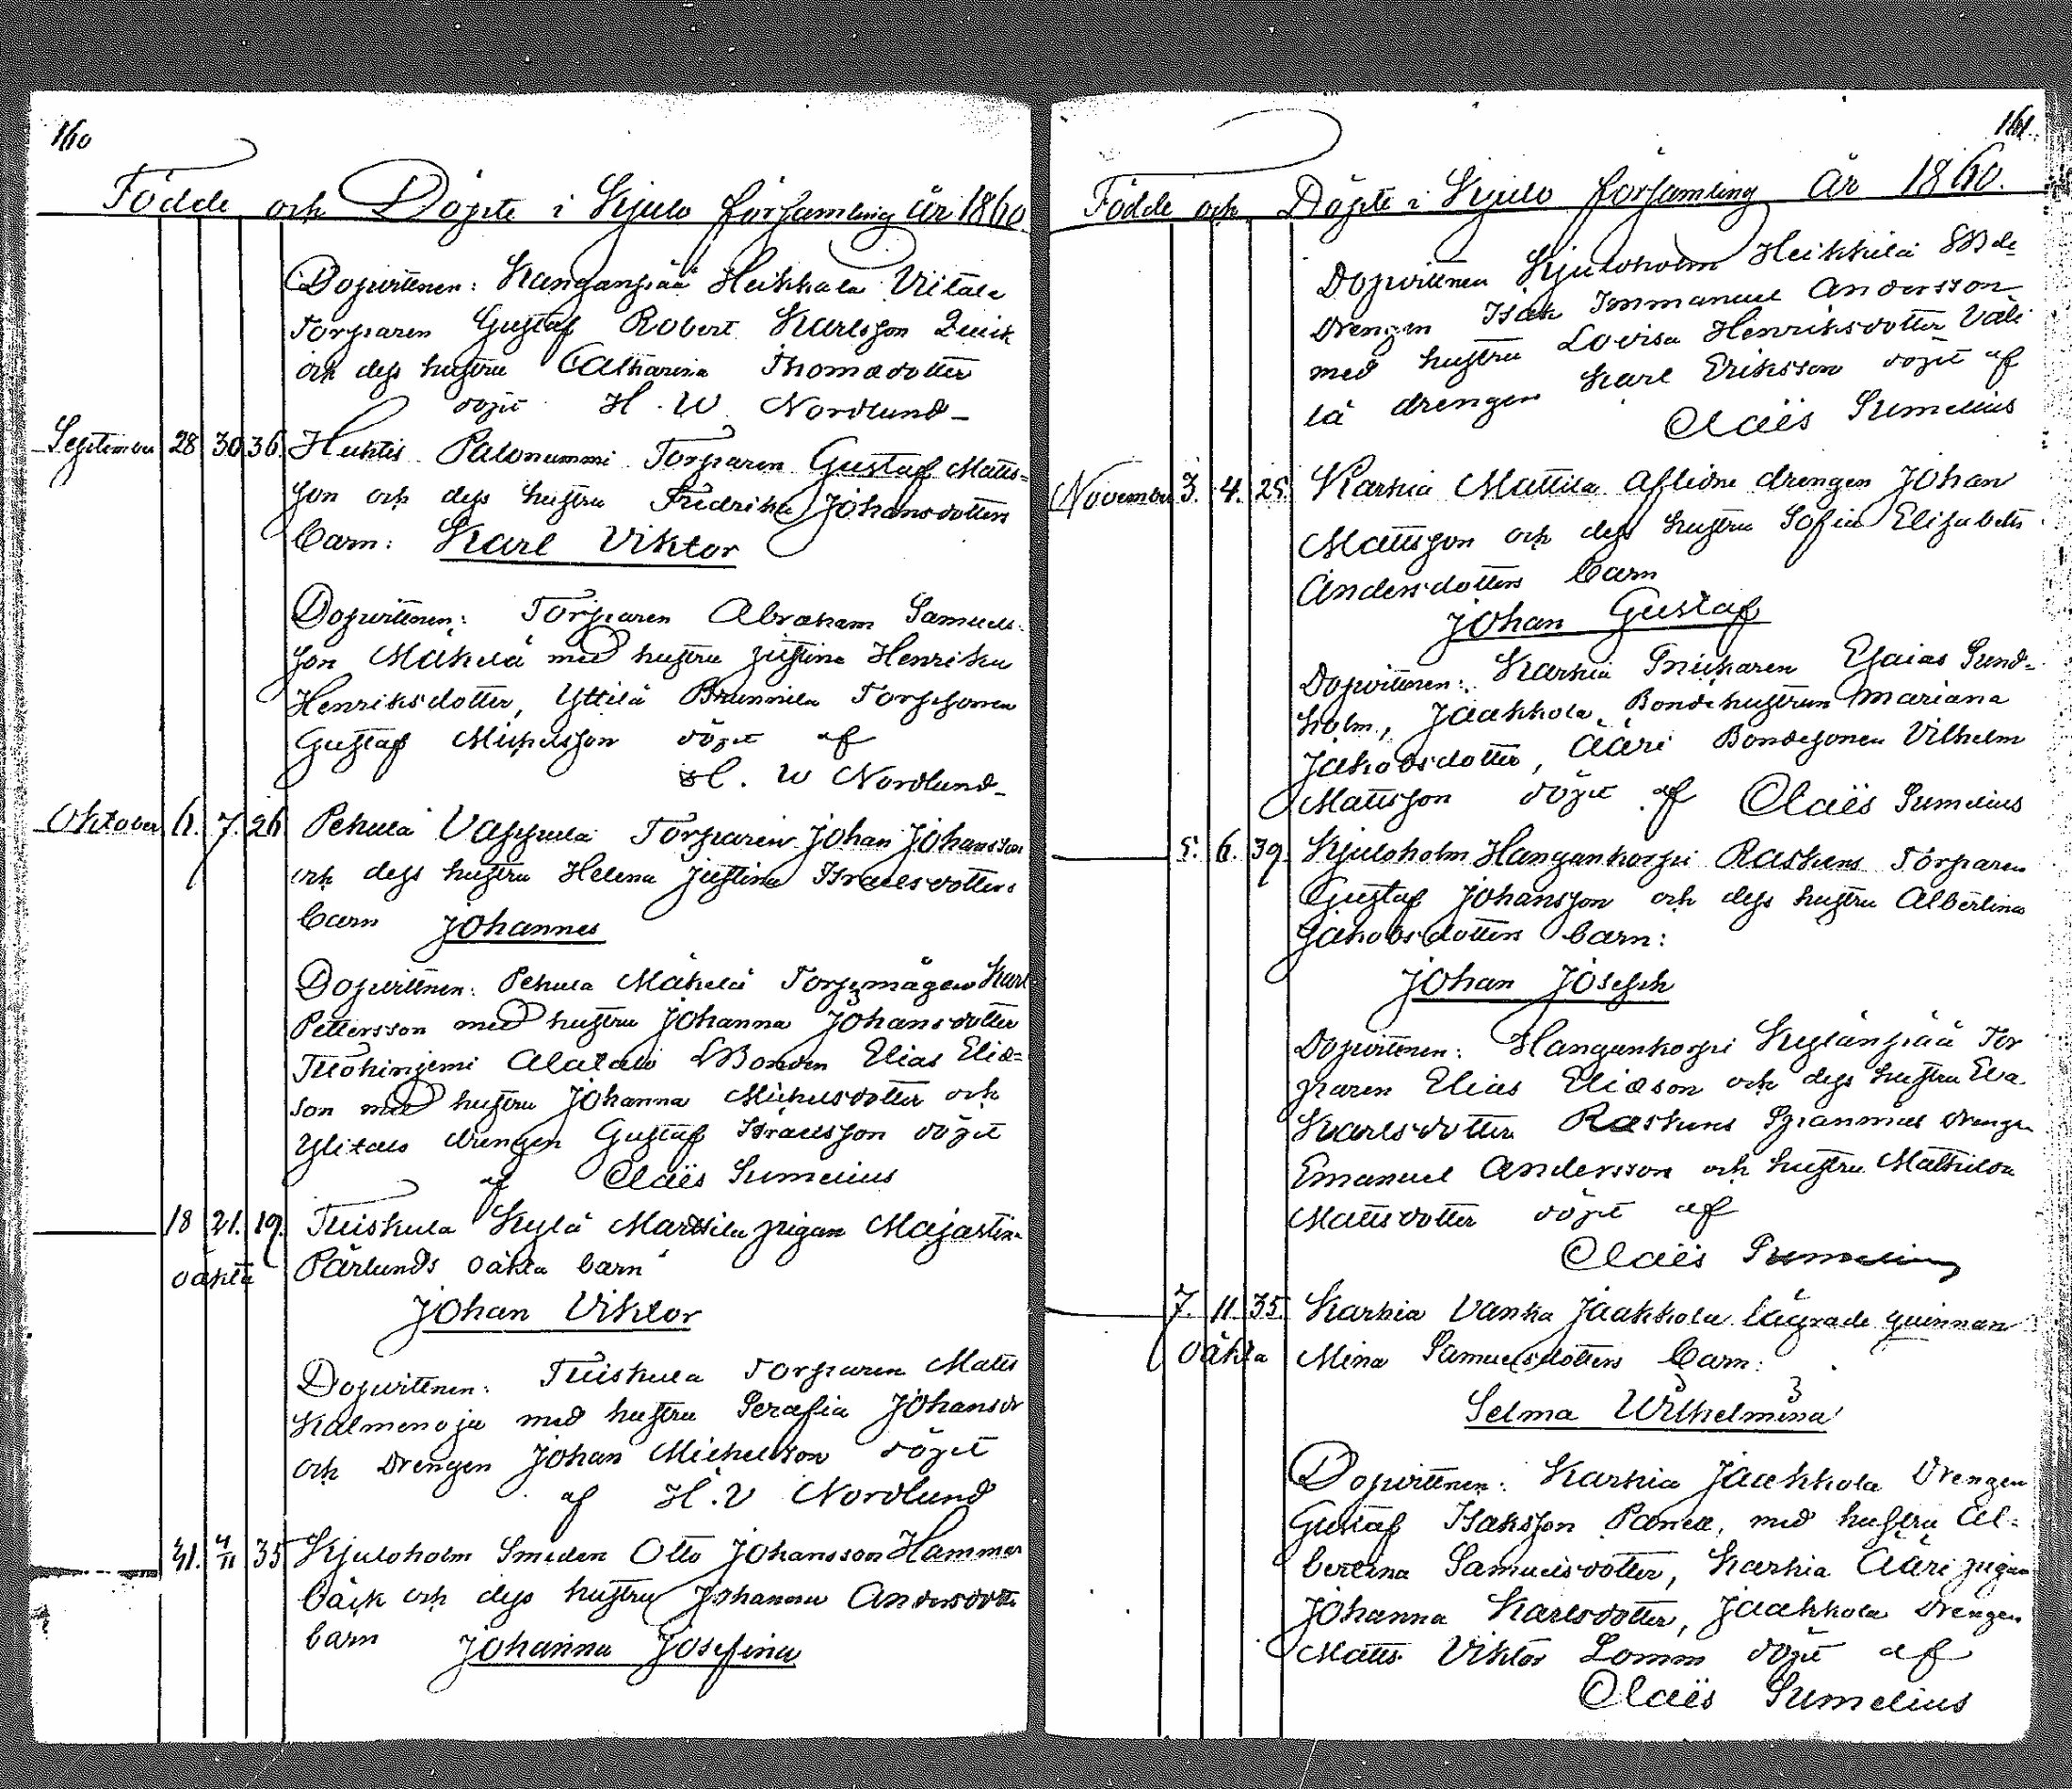 160
Födde och Döpte i Kjulo församling år 1860.
Dopvittnen: Kanganpää Heikkola Viitala
Torparen Gustaf Robert Karlsson Quick
och dess hustru Catharina Thomasdotter
döpt H. W. Nordlund
September 28 30 36. Huhtis Palonummi Torparen Gustaf Matts-
son och dess hustru Fredrika Johansdotters
barn: Karl Viktor
Dopvittnen: Torparen Abraham Samuels-
son Mäkelä med hustru Justina Henrika
Henriksdotter, Yttilä Brunnila Torpsonen
Gustaf Michelsson döpt af
H. W Nordlund
Oktober 6. 7. 26 Pehula Vappula Torparen Johan Johansson
och dess hustru Helena Justina Israelsdotters
barn Johannes
Dopvittnen: Pehula Mäkelä Torpmågen Karl
Pettersson med hustru Johanna Johansdotter
Tuohiniemi Alatalo Bonden Elias Elias-
son med hustru Johanna Michelsdotter och
Ylitalo drengen Gustaf Israelsson döpt
af Claës Sumelius
18 21. 19. Tuiskula Kylä Marttila pigan Majastina
oäkta Pärlunds oäkta barn
Johan Viktor
Dopvittnen: Tuiskula Torparen Matts
Kalmenoja med hustru Serafia Johansdr
och Drengen Johan Michelsson döpt
af H. V Nordlund
31. 4/11 35 Kjuloholm Smeden Otto Johansson Hammar
bäck och dess hustru Johanna Andersdotte
barn Johanna Josefina
161.
Födde och Döpte i Kjulo församling år 1860.
Dopvittnen Kjuloholm Heikkilä
Drengen Isak Immanuel Andersson
med hustru Lovisa Henriksdotter Väli
lä drengen Karl Eriksson döpt af
Claës Sumelius
November 3. 4. 25. Karhia Mattila Aflidne drengen Johan
Mattsson och dess hustru Sofia Elisabeth
Andersdotters barn
Johan Gustaf
Dopvittnen: Karhia Snickaren Esaias Sund-
holm, Jaakkola Bondehustrun Mariana
Jakobsdotter, Ääri Bondesonen Vilhelm
Mattsson döpt af Claës Sumelius
5. 6. 39. Kjuloholm Hangankorpi Raskens Torparen
Gustaf Johansson och dess hustru Albertina
Jakobsdotters barn:
Johan Joseph
Dopvittnen: Hangankorpi Kylänpää Tor
paren Elias Eliasson och dess hustru Eva
Karlsdotter Raskens drengen
Emanuel Andersson och hustru Mathilda
Mattsdotter döpt af
Claës Sumelius
7. 11. 35. Karhia Vanha Jaakkola lägrade qvinnan
oäkta Mina Samuelsdotters barn:
Selma Wilhelmina
Dopvittnen: Karhia Jaakkola Drengen
Gustaf Isaksson Panea, med hustru Al-
bertina Samuelsdotter, Karhia Ääri pigan
Johanna Karlsdotter, Jaakkola Drengen
Matts Viktor Lomm döpt af
Claës Sumelius